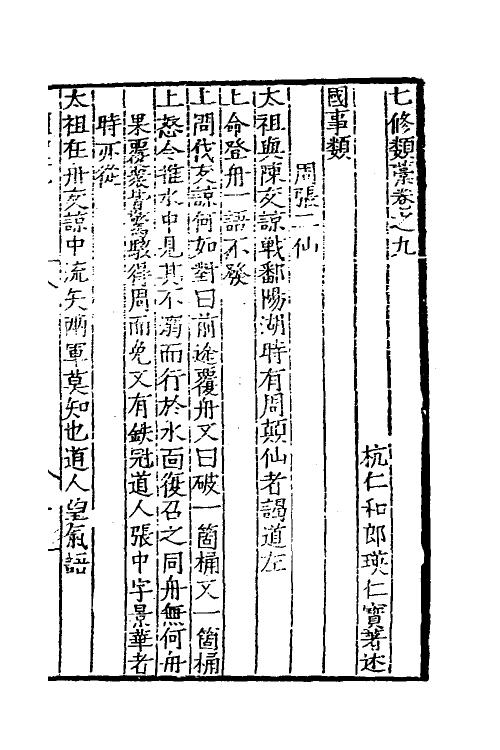 七修類藁卷之九
杭仁和郎瑛仁寶著述
國事類
周張二仙
太祖與陳友諒戰鄱陽湖時有周顛仙者謁道左
上命登舟一語不發
上問伐友諒何如對曰前途覆舟又曰破一箇桶又一箇桶
上怒令推水中見其不溺而行於水面復召之同舟無何舟
果覆衆皆驚駭得周而免又有鉄冠道人張中字景華者
時亦從
太祖在舟友諒中流矢兩軍莫知也道人望氣語